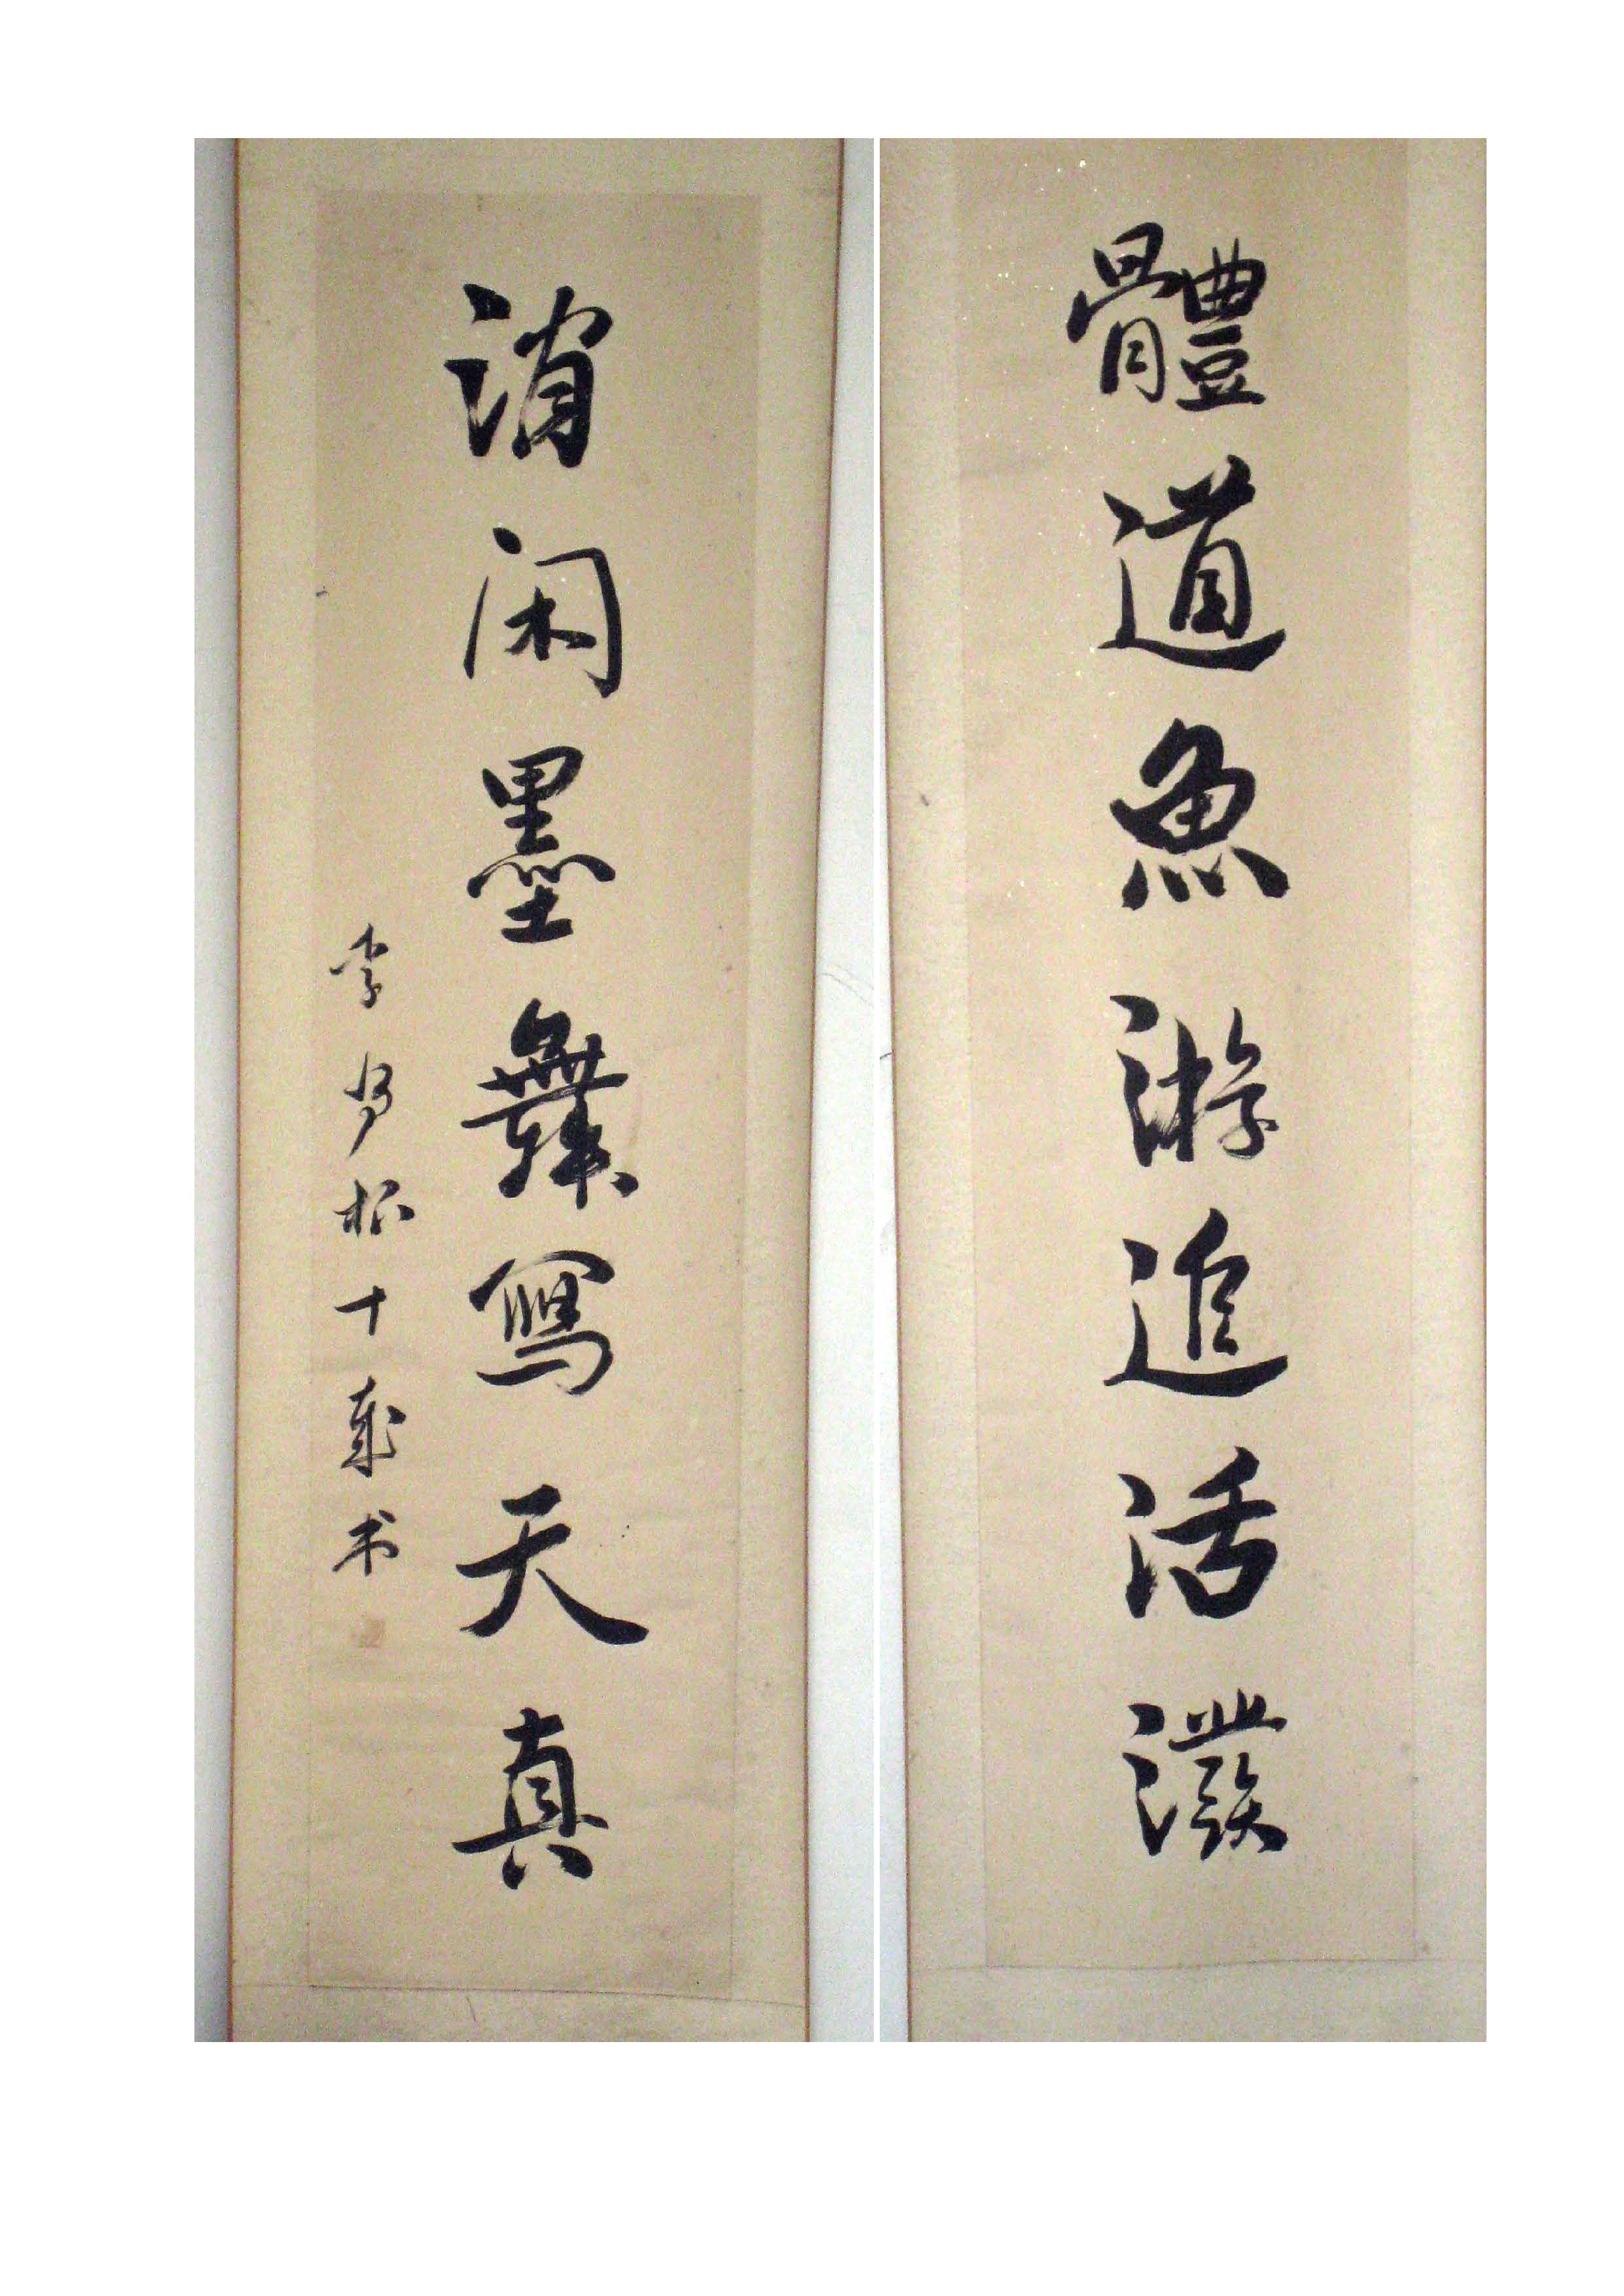 體道魚游追活潑
消闲墨舞寫天真
李
十歲书